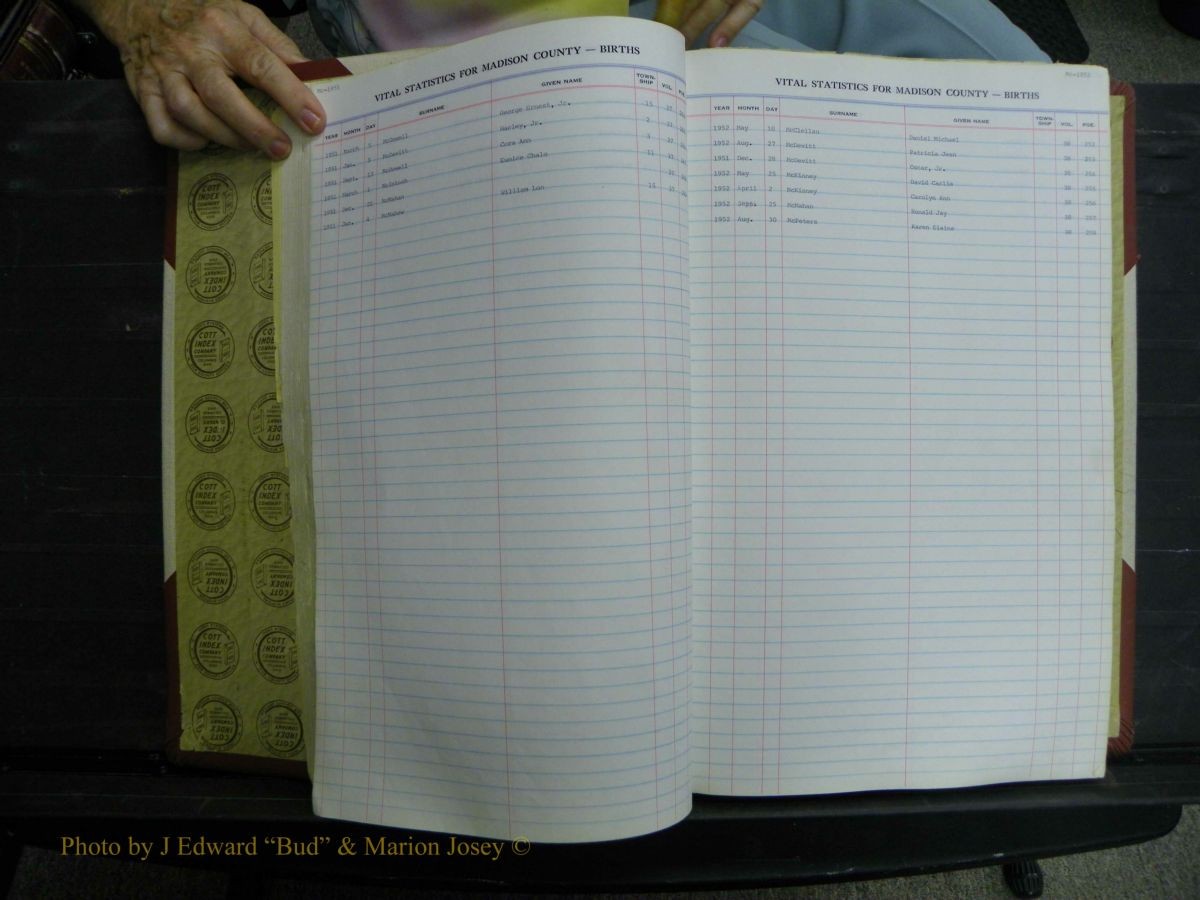 Mc-1951
VITAL STATISTICS FOR MADISON COUNTY — BIRTHS
YEAR MONTH DAY SURNAME GIVEN NAME TOWN-SHIP VOL. PGE.
1951 March 5 McDowell George Ernest, Jr. 15 37
1951 Jan. 3 McDevitt Hasley, Jr. 2 37
1951 Sept. 13 McDowell Cora Ann 3 37
1951 March 1 McIntosh Eunice Chalo 11 37
1951 Dec. McMahan
1951 Jan. 4 McMahow William Lon 15 37
Mc-1952
VITAL STATISTICS FOR MADISON COUNTY — BIRTHS
YEAR MONTH DAY SURNAME GIVEN NAME TOWN-SHIP VOL. PGE.
1952 May 10 McClellan Daniel Michael 38 252
1952 Aug. 27 McDevitt Patricia Jean 38 253
1951 Dec. 28 McDevitt Oscar, Jr. 38 254
1952 May 25 McKinney David Castle 38 255
1952 April 2 McKinney Carolyn Ann 38 256
1952 Sept. 25 McMahan Ronald Jay 38 257
1952 Aug. 30 McPeters Karen Elaine 38 258
COTT INDEX COMPANY COLUMBUS OHIO
Photo by J Edward “Bud” & Marion Josey ©